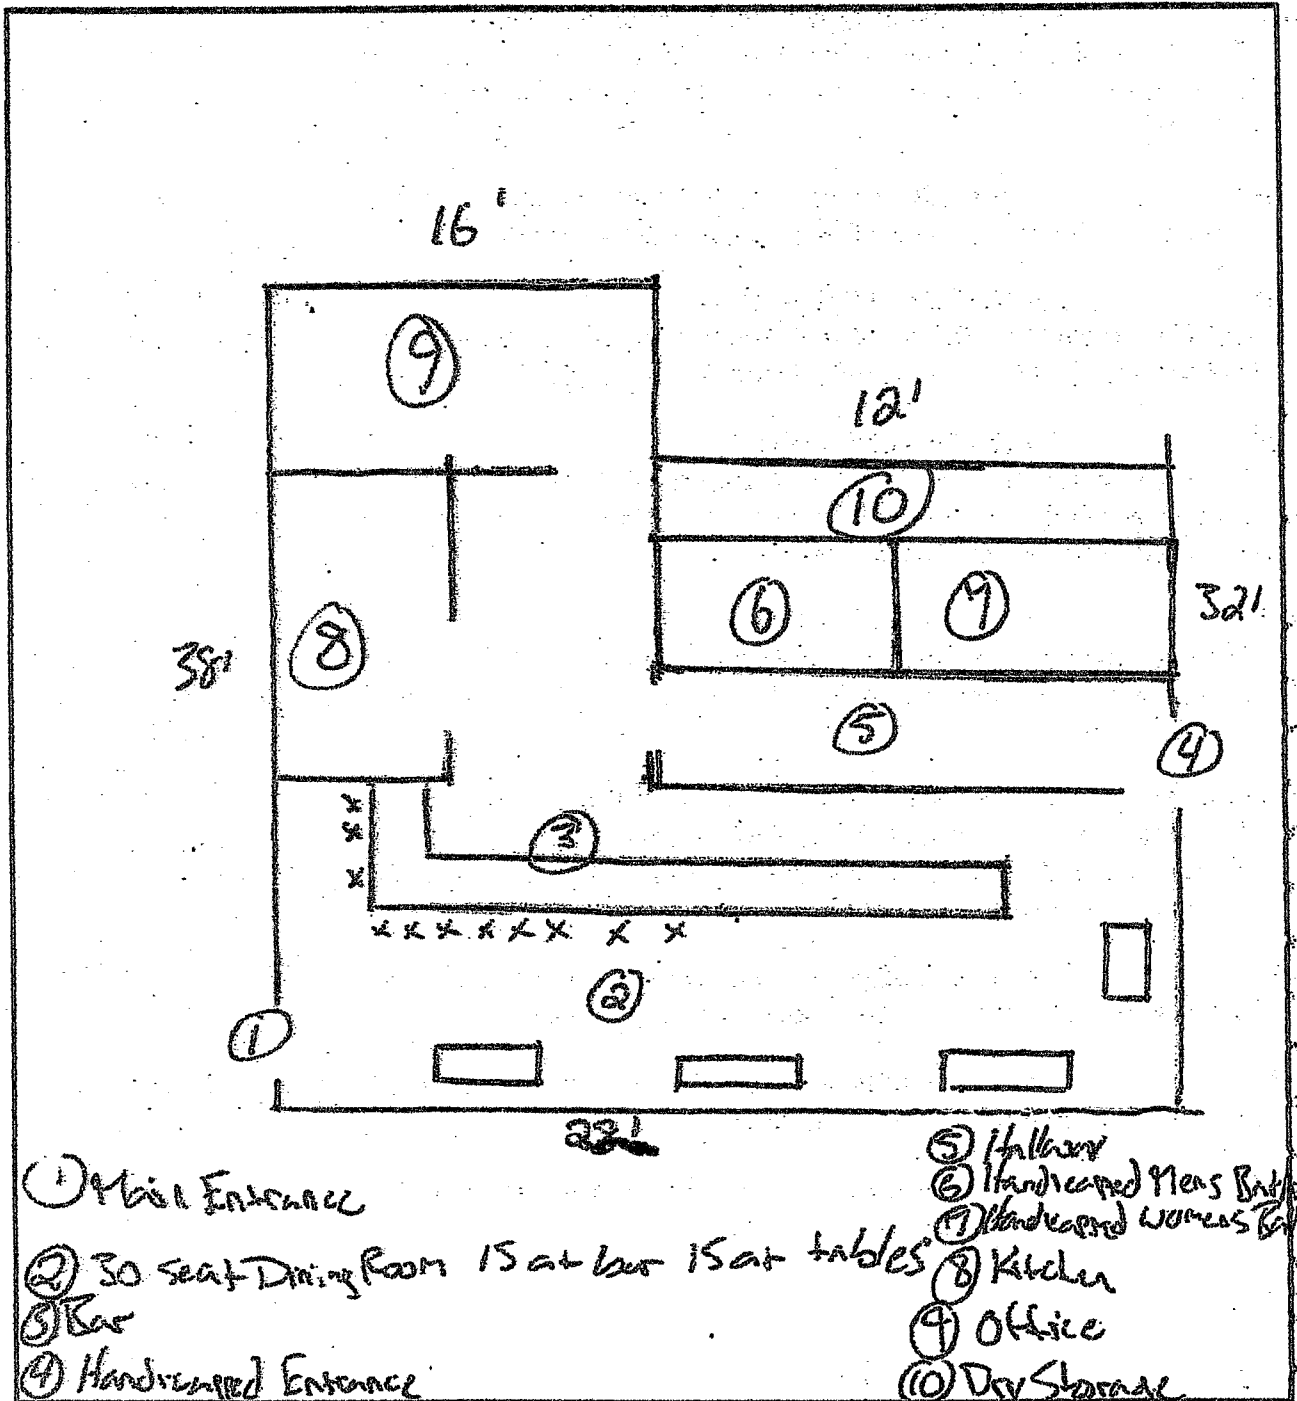 16'
9
12'
10
6
7
32'
8
38'
5
4
3
x x
x x
x
x x x x x x x x
2
1
22'
① Main Entrance
② 30 seat Dining Room 15 at bar 15 at tables
③ Bar
④ Handicapped Entrance
⑤ Hallway
⑥ Handicapped Mens Bath
⑦ Handicapped Womens Ba
⑧ Kitchen
⑨ Office
⑩ Dry Storage